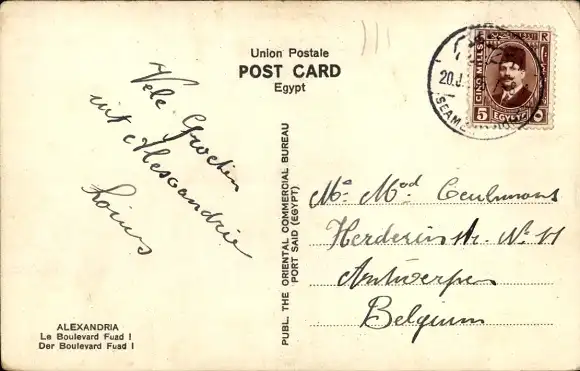 Union Postale
POST CARD
Egypt
CINQ MILLS
5 EGYPTE ٥
20.J
SEAME
Vele Groeten
uit Alexandrie
Louis
PUBL. THE ORIENTAL COMMERCIAL BUREAU
PORT SAID (EGYPT)
Mr Mad Ceulemans
Herderinstr. No 11
Antwerpen
Belgium
ALEXANDRIA
Le Boulevard Fuad I
Der Boulevard Fuad I